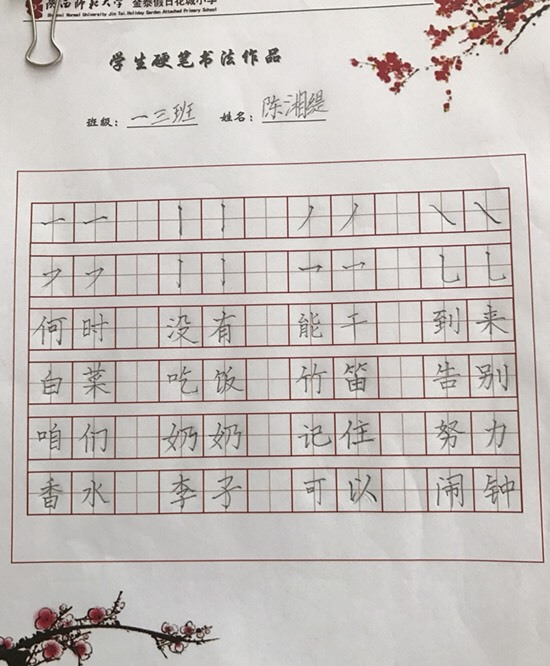 陕西师范大学 金泰假日花城小学
Shaanxi Normal University Jin Tai Holiday Garden Attached Primary School
学生硬笔书法作品
班级：一三班 姓名：陈湘缇
一 一 丨 丨 丿 丿 ㇏ ㇏
㇇ ㇇ 亅 亅 乛 乛 乚 乚
何时 没有 能干 到来
白菜 吃饭 竹笛 告别
咱们 奶奶 记住 努力
香水 李子 可以 闹钟